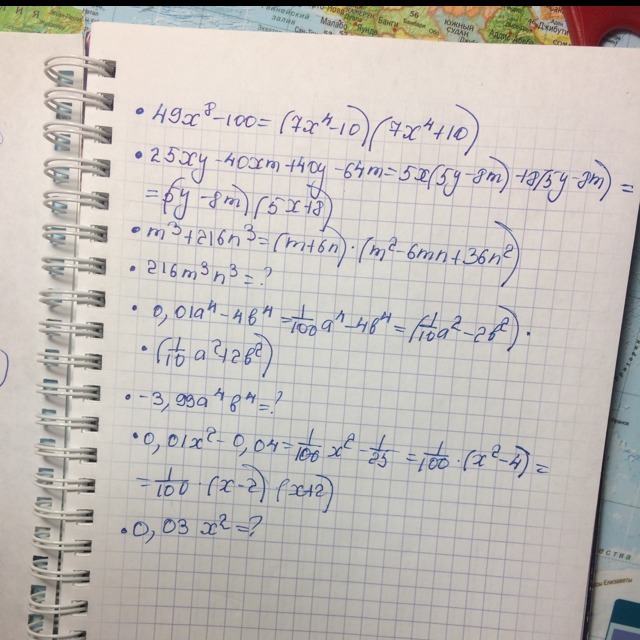 ЮЖНЫЙ СУДАН
56
Джибути
• 49x⁸-100=(7x⁴-10)(7x⁴+10)
• 25xy-40xm+40y-64m=5x(5y-8m)+8(5y-8m)=
=(5y-8m)(5x+8)
• m³+216n³=(m+6n)·(m²-6mn+36n²)
• 216m³n³=?
• 0,01a⁴-4b⁴=1/100a⁴-4b⁴=(1/10a²-2b²)·
·(1/10a²+2b²)
• -3,99a⁴b⁴=?
• 0,01x²-0,04=1/100x²-1/25=1/100·(x²-4)=
=1/100·(x-2)(x+2)
• 0,03x²=?
Елизаветы